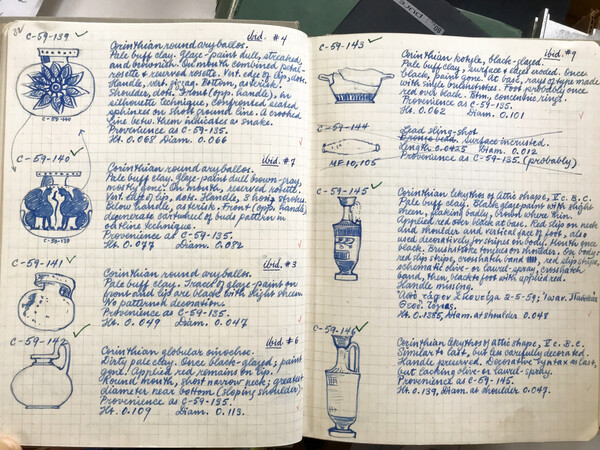 C-59-139 ✓
ibid. # 4
Corinthian round aryballos.
Pale buff clay. Glaze-paint dull, streaked,
and brownish. On mouth combined petal-
rosette & reserved rosette. Vert. edge of lip, dots.
Handle, vert. Bottom, asterisk.
Shoulder, dots. Front (opp. handle), in
silhouette technique, confronted seated
sphinxes on short ground line. A crooked
line betw. them indicates a snake.
Provenience as C-59-135.
Ht. 0.068 Diam. 0.066
C-59-140
C-59-140 ✓
ibid. # 7
Corinthian round aryballos.
Pale buff clay. Glaze-paint dull brown-gray,
mostly gone. On mouth, reserved rosette.
Vert. edge of lip, dots. Handle, 3 horiz. strokes.
Below handle, asterisk. Front (opp. handle)
degenerate cartwheel of buds pattern in
outline technique.
Provenience as C-59-135.
Ht. 0.077 Diam. 0.082
C-59-139
C-59-141 ✓
ibid. # 3
Corinthian round aryballos.
Pale buff clay. Traces of glaze-paint on
front and lip are black with slight sheen.
No pattern decoration.
Provenience as C-59-135.
Ht. 0.049 Diam. 0.047
C-59-142 ✓
ibid # 6
Corinthian globular oinochoe.
Dirty pale clay. Once black-glazed; paint
gone. Applied red remains on lip.
Round mouth, short narrow neck; greatest
diameter near bottom (sloping shoulder).
Provenience as C-59-135.
Ht. 0.109 Diam. 0.113.
C-59-143 ✓
ibid. # 9
Corinthian kotyle, black-glazed.
Pale buff clay, surface & edges eroded. Once
black, paint gone. At base, rays of type made
with single brushstrokes. Foot probably once
red over black. Btm, concentric rings.
Provenience as C-59-135.
Ht. 0.062 Diam. 0.101
C-59-144
MF 10,105
Lead sling-shot
Surface incrusted.
Length 0.0425 Diam. 0.012
Provenience as C-59-135 (probably)
C-59-145 ✓
Corinthian lekythos of Attic shape, V c. B.C.
Pale buff clay. Black glaze-paint with slight
sheen, flaking badly, brown where thin.
Applied red also for lines at base. Red slip on neck
and shoulder and vertical face of foot, also
used decoratively for stripes on body. Mouth once
black. Brushstroke tongues on shoulder. On body:
red slip stripes, crosshatch band, red slip stripe,
schematic olive- or laurel-spray, crosshatch
band, then black to foot with applied red.
Handle missing.
Ht. 0.1385, Diam. at shoulder 0.048
C-59-146 ✓
Corinthian lekythos of Attic shape, V c. B.C.
Similar to last, but less carefully decorated.
Handle preserved. Decorative syntax as last,
but lacking olive- or laurel-spray.
Provenience as C-59-145.
Ht. 0.139, Diam. at shoulder 0.047.